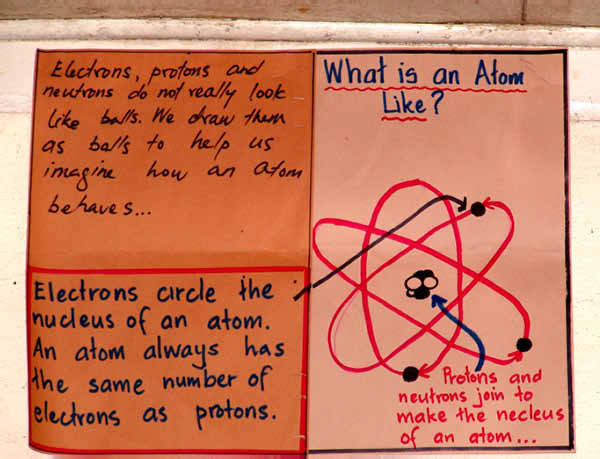 Electrons, protons and
neutrons do not really look
like balls. We draw them
as balls to help us
imagine how an atom
behaves...
Electrons circle the
nucleus of an atom.
An atom always has
the same number of
electrons as protons.
What is an Atom
Like?
Protons and
neutrons join to
make the necleus
of an atom...